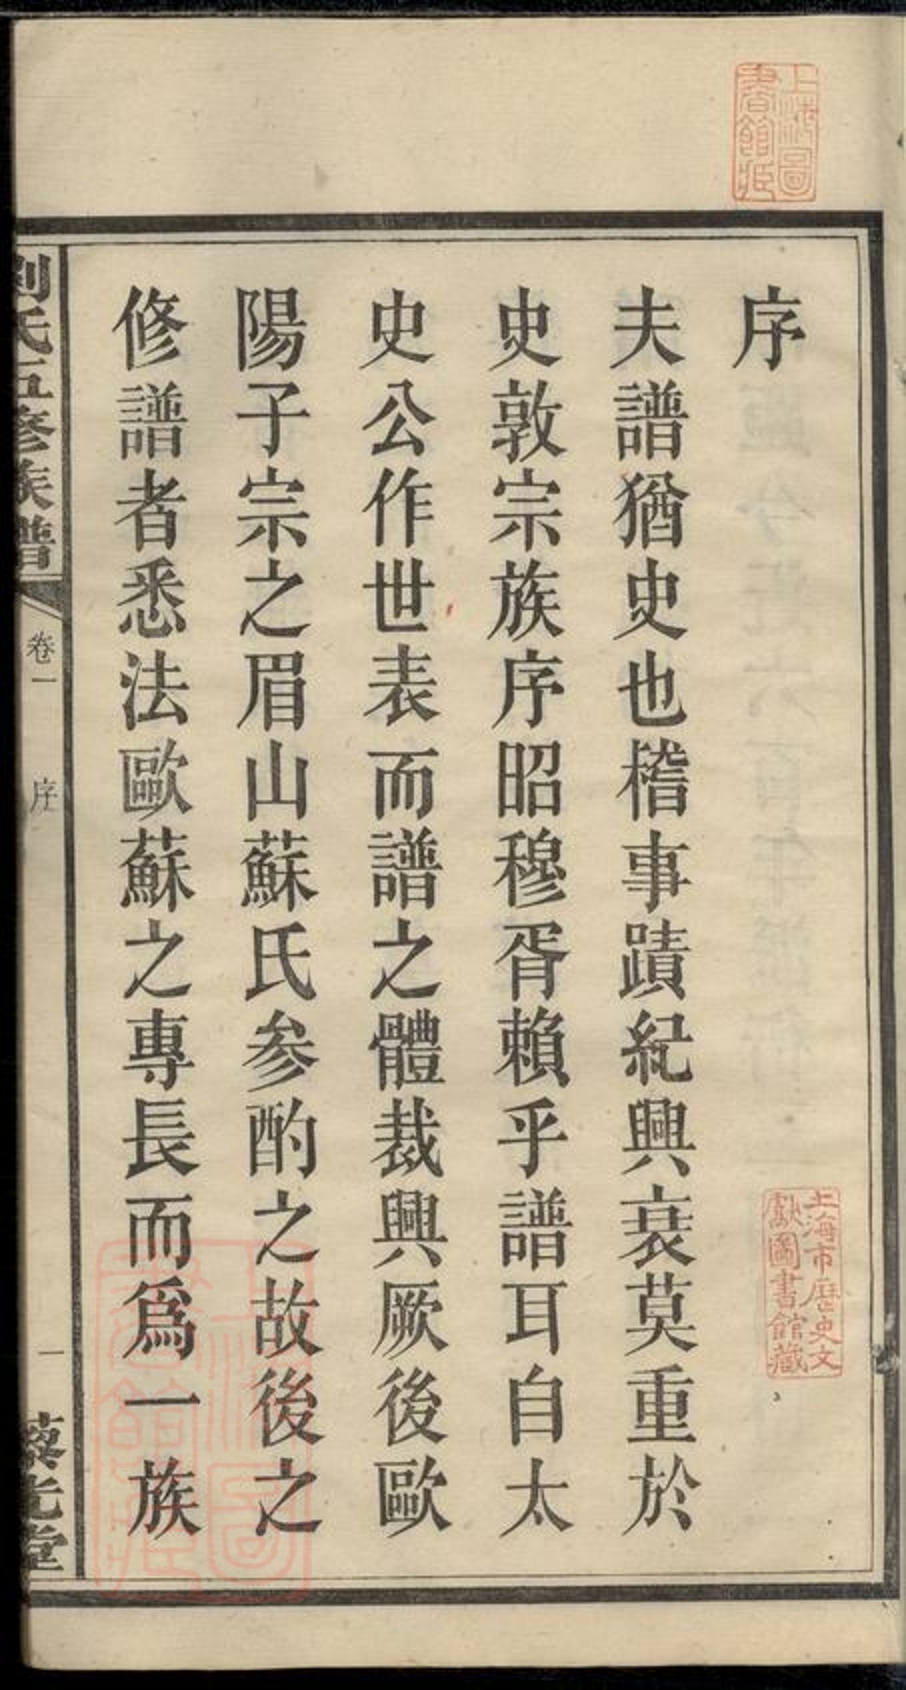 序
夫譜猶史也稽事蹟紀興衰莫重於
史敦宗族序昭穆胥賴乎譜耳自太
史公作世表而譜之體裁興厥後歐
陽子宗之眉山蘇氏參酌之故後之
修譜者悉法歐蘇之專長而爲一族
劉氏五修族譜
卷一
序
一
藜光堂
上海圖書館藏
上海市歷史文獻圖書館藏
上海圖書館藏